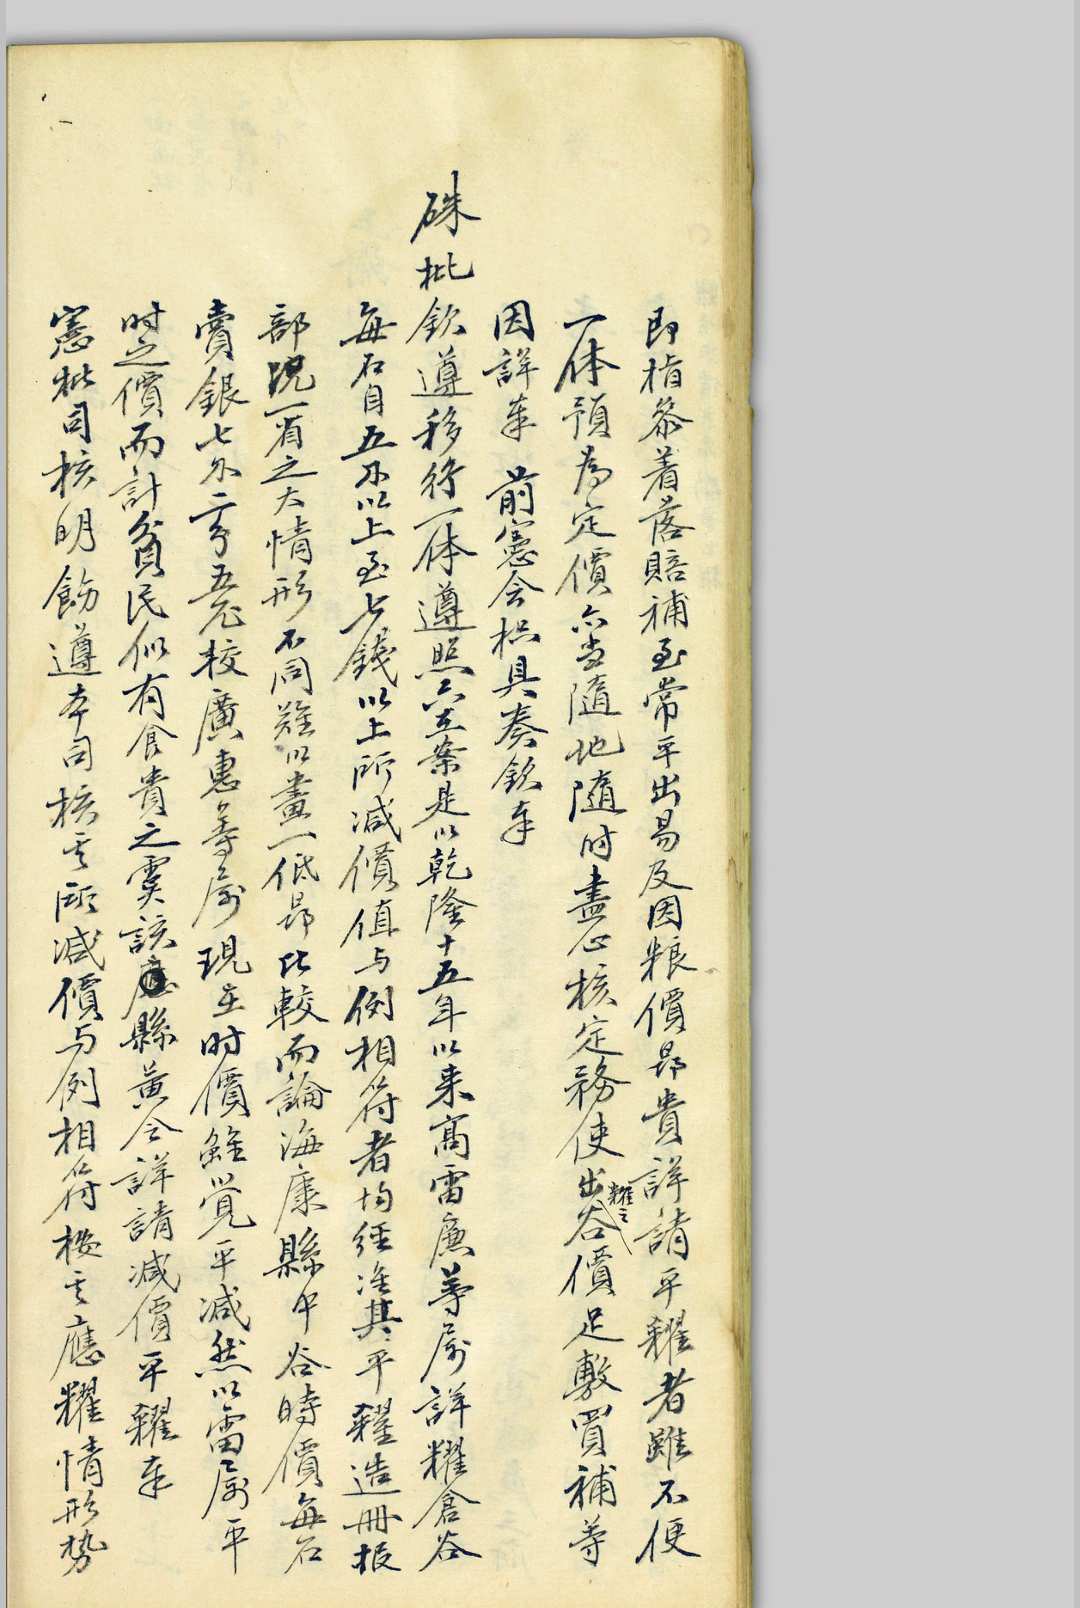 即指叅着落賠補至常平出易及因粮價昂貴詳請平糶者雖不便
一体預為定價亦当隨地隨时盡心核定務使出糶之谷價足敷買補等
因詳奉 前憲会枟具奏欽奉
硃批欽遵移行一体遵照亦在案是以乾隆十五年以来高雷廉等屬詳糶倉谷
每石自五分以上至七錢以上所減價值与例相符者均经准其平糶造冊报
部現一省之大情形不同难以畫一低昂比較而論海康縣中谷時價每石
賣銀七分二亨五况較廣惠等屬現在时價雖覺平減然以雷屬平
时之價而計貧民似有食貴之虞該縣黄令詳請減價平糶奉
憲批司核明飭遵本司核其所減價与例相符按其應糶情形势